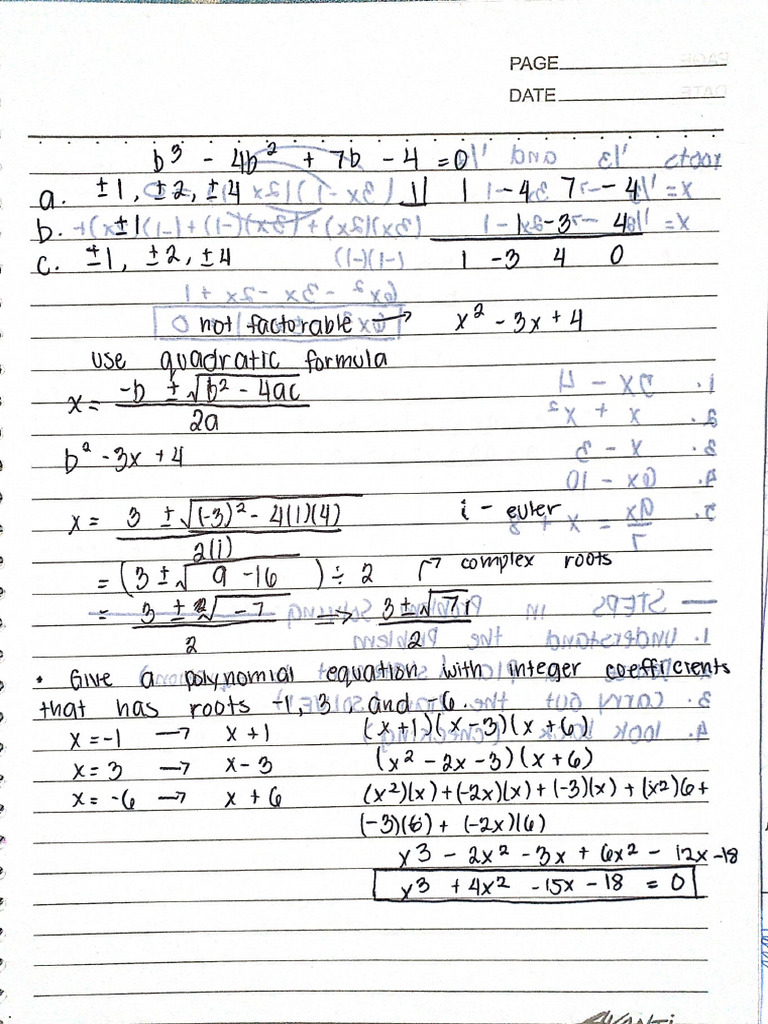 PAGE
DATE
b³ - 4b² + 7b - 4 = 0
a. ±1, ±2, ±4 1| 1 -4 7 -4
b. ±1 1 -3 4
c. ±1, ±2, ±4 1 -3 4 0
not factorable → x² - 3x + 4
use quadratic formula
x = -b ± √b² - 4ac
2a
b² - 3x + 4
x = 3 ± √(-3)² - 4(1)(4) i - euler
2(1)
= (3 ± √9 - 16) ÷ 2 complex roots
= 3 ± √-7 → 3 ± √7i
2 2
• Give a polynomial equation with integer coefficients
that has roots -1, 3, and -6.
x = -1 → x + 1 (x+1)(x-3)(x+6)
x = 3 → x - 3 (x² - 2x - 3)(x+6)
x = -6 → x + 6 (x²)(x)+(-2x)(x)+(-3)(x)+(x²)6+
(-3)(6) + (-2x)(6)
x3 - 2x² - 3x + 6x² - 12x -18
x3 + 4x² - 15x - 18 = 0